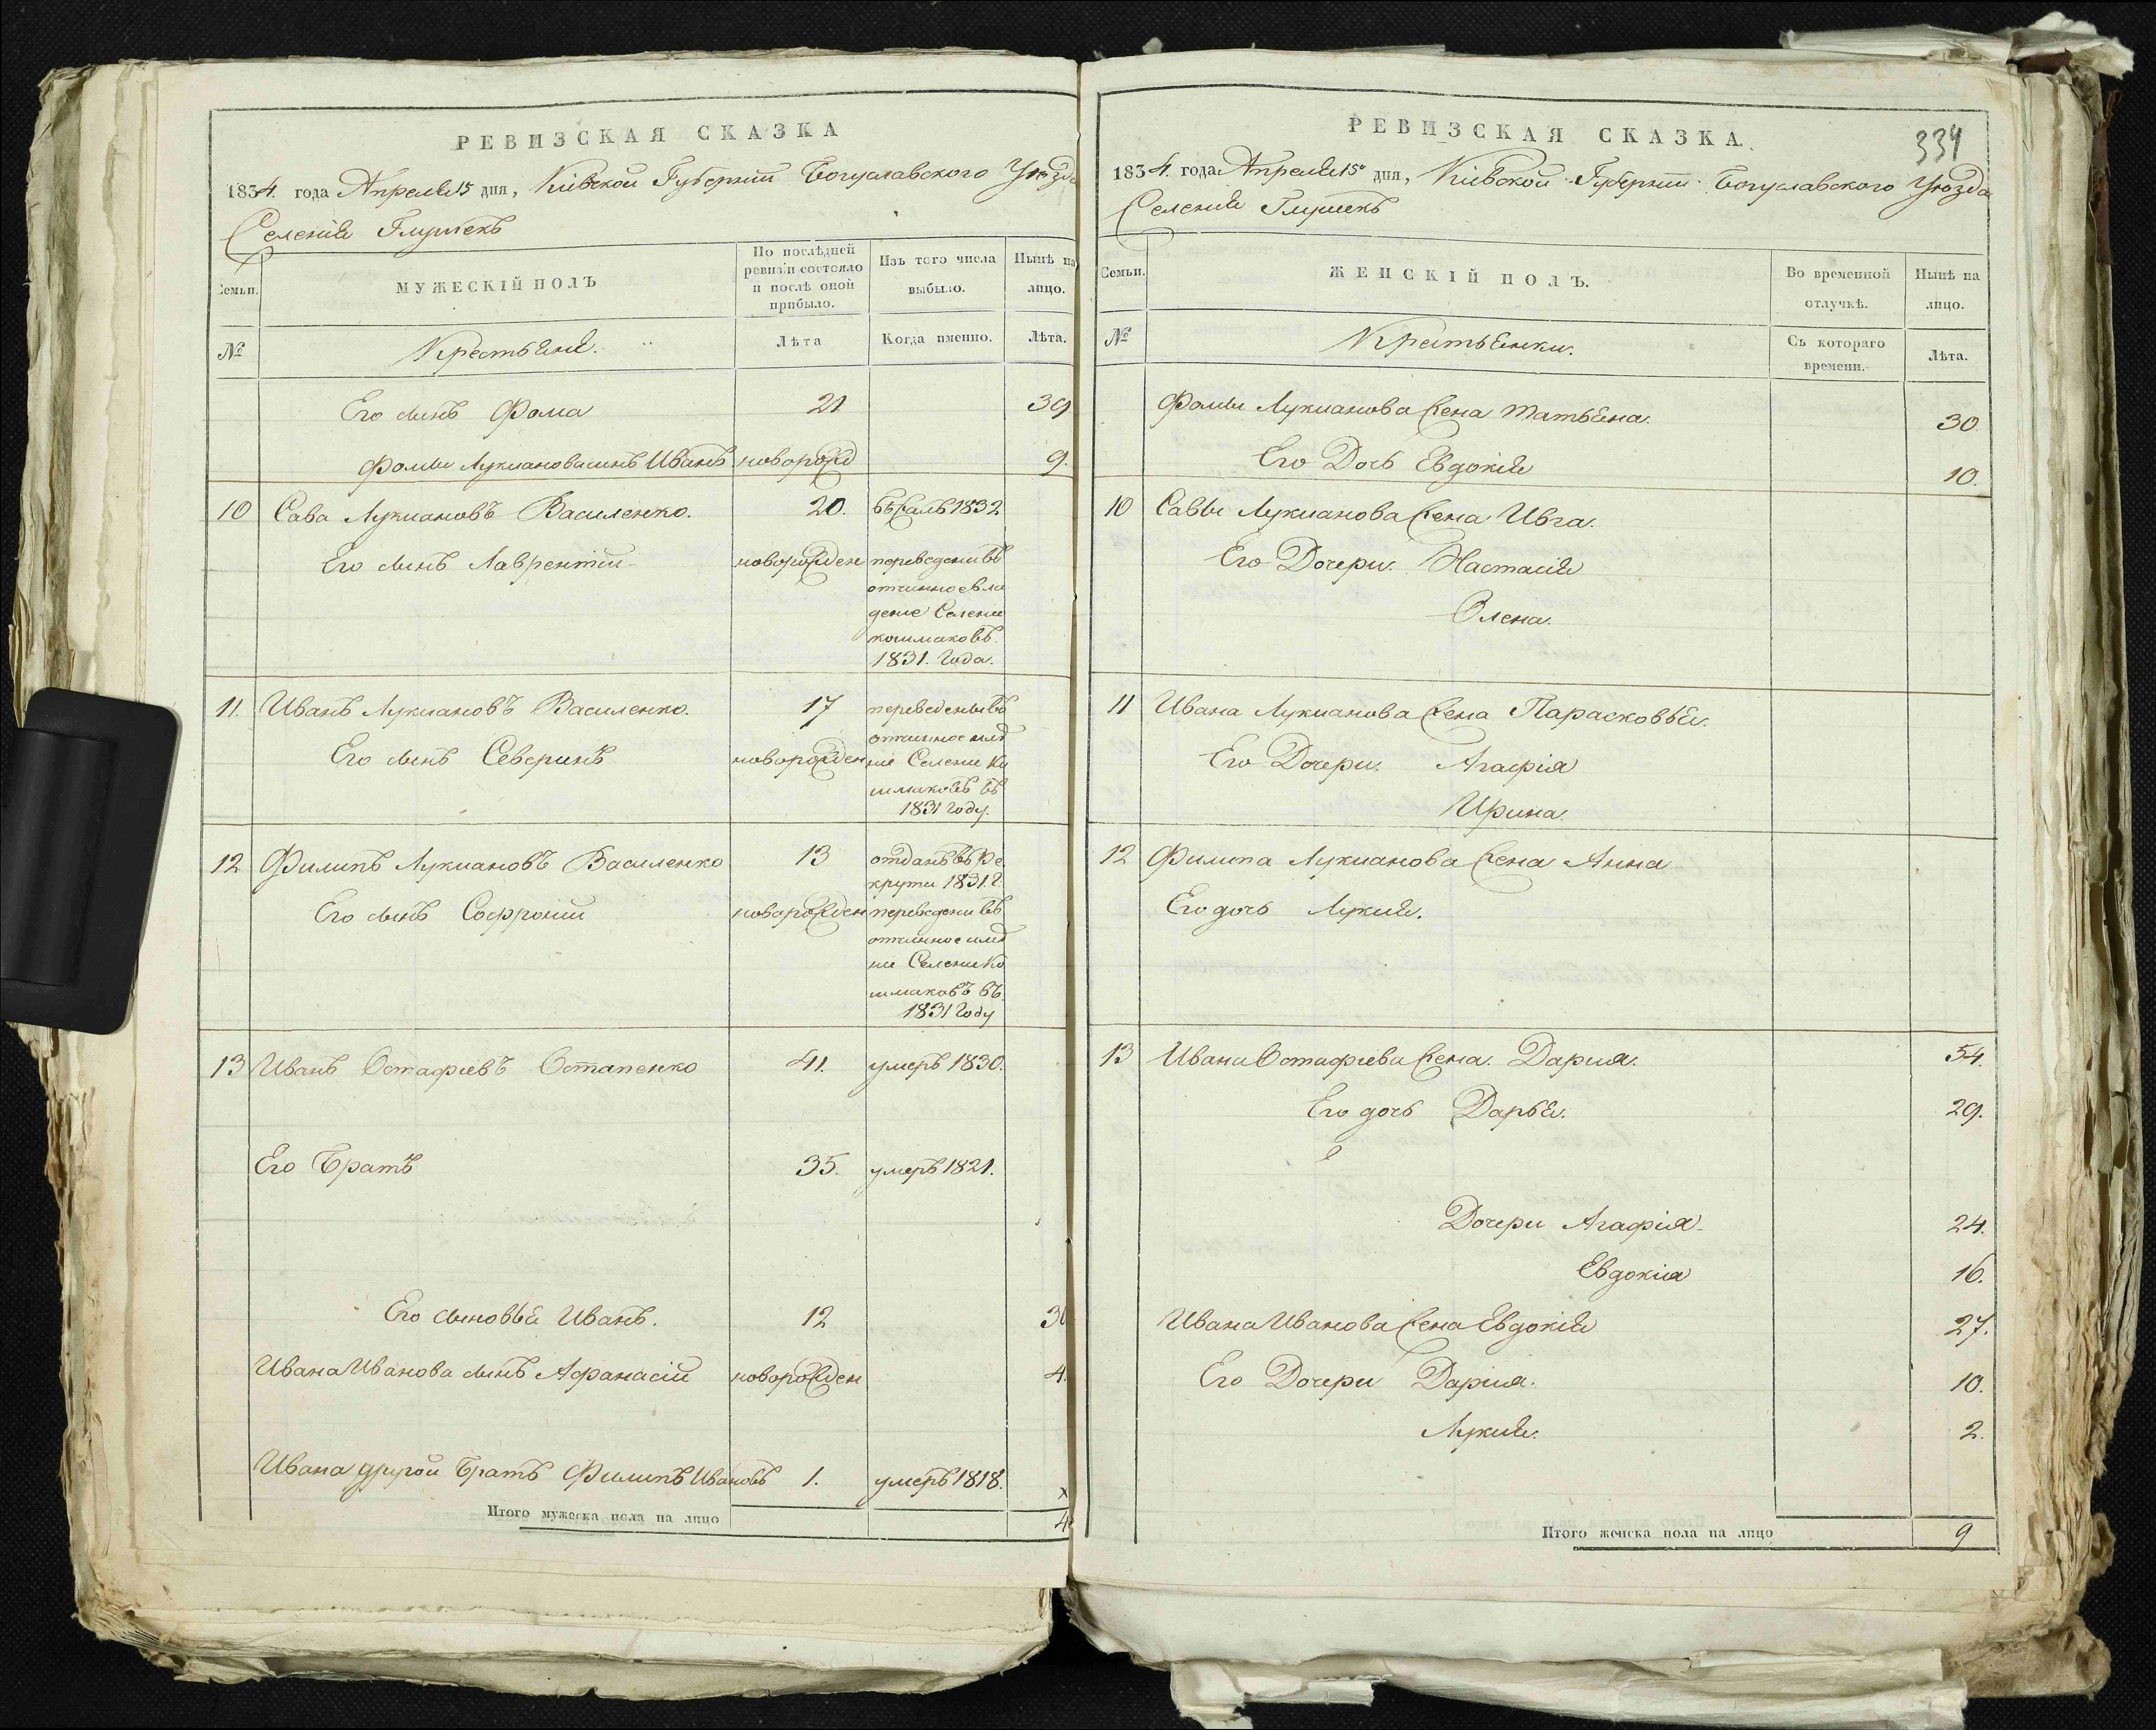 РЕВИЗСКАЯ СКАЗКА
1834. года Апреля 15 дня, Кіевской Губерніи Богуславского Уезда
Селенія Глушекъ
Семьи.
МУЖЕСКІЙ ПОЛЪ
По послѣдней ревизіи состояло и послѣ оной прибыло.
Изъ того числа выбыло.
Нынѣ на лицо.
№
Крестьяне.
Лѣта
Когда именно.
Лѣта.
Его сынъ Фома 21 39
Фомы Лукианова сынъ Иванъ новорожд 9.
10 Сава Лукиановъ Василенко. 20. бѣжалъ 1832
Его сынъ Лаврентій новорожден переведени въ
отчинное вла
дение Селени
кошмаковъ.
1831. Года.
11. Иванъ Лукиановъ Василенко. 17 переведены въ
отчинное имѣ
Его сынъ Северинъ новорожден ніе Селени Ко
шмаковъ въ
1831 Году.
12 Филипъ Лукиановъ Василенко 13 отданъ въ Ре
крути 1831. г.
Его сынъ Софроній новорожден переведени въ
отчинное имѣ
ние Селени Ко
шмаковъ въ
1831 Году
13 Иванъ Остафіевъ Остапенко 41. умеръ 1830.
Его Братъ 35. умеръ 1821.
Его сыновья Иванъ. 12
Ивана Иванова сынъ Афанасій новорожден 4.
Ивана другой Братъ Филипъ Ивановъ 1. умеръ 1818.
Итого мужеска пола на лицо 4
РЕВИЗСКАЯ СКАЗКА.
334
1834. года Апреля 15 дня, Кіевской Губерніи Богуславского Уезда
Селенія Глушекъ
Семьи.
ЖЕНСКІЙ ПОЛЪ.
Во временной отлучкѣ.
Нынѣ на лицо.
№
Крестьянки.
Съ котораго времени.
Лѣта.
Фомы Лукианова жена Татьяна. 30.
Его Дочь Евдокія 10.
10 Саввы Лукианова жена Ивга.
Его Дочери. Настасія
Олена.
11 Ивана Лукианова жена Парасковья.
Его Дочери. Агафія
Ирина.
12 Филипа Лукианова жена Анна
Его дочь Лукия.
13 Ивана Остафіева жена. Дария. 54.
Его дочь Дарья. 29.
Дочери Агафія 24.
Евдокія 16.
Ивана Иванова жена Евдокія 27.
Его Дочери Дария. 10.
Лукия. 2.
Итого женска пола на лицо 9